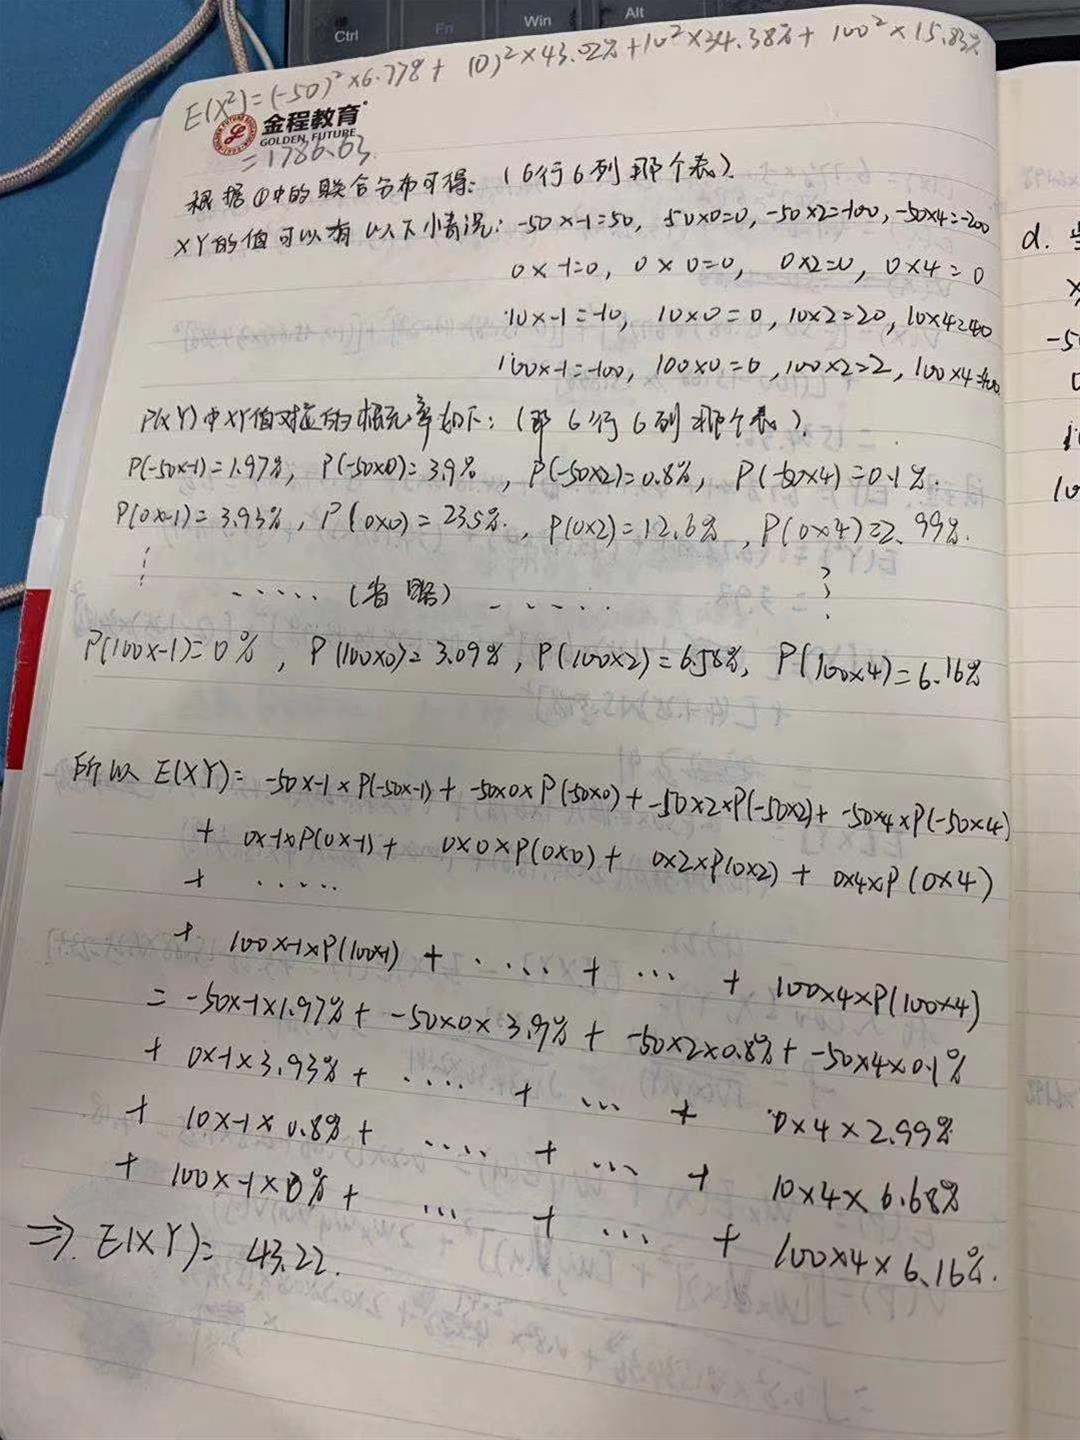 Ctrl
Fn
Win
Alt
E(X²)=(-50)²×6.77%+ (0)²×43.02%+10²×34.38%+ 100²×15.83%
金程教育
GOLDEN FUTURE
=1786.63
根据①中的联合分布可得: (6行6列那个表).
XY的值可以有以下小情况: -50×-1=50, 50×0=0, -50×2=-100, -50×4=-200
0×-1=0, 0×0=0, 0×2=0, 0×4=0
10×-1=-10, 10×0=0, 10×2=20, 10×4=40
100×-1=-100, 100×0=0, 100×2=2, 100×4=400
P(XY)中XY值对应的概率如下: (即6行6列那个表).
P(-50×-1)=1.97%, P(-50×0)=3.9%, P(-50×2)=0.8%, P(-50×4)=0.1%.
P(0×-1)=3.93%, P(0×0)=23.5%, P(0×2)=12.6%, P(0×4)=2.99%.
..... (省略) .....
P(100×-1)=0%, P(100×0)=3.09%, P(100×2)=6.58%, P(100×4)=6.16%
所以 E(XY)= -50×-1×P(-50×-1)+ -50×0×P(-50×0)+ -50×2×P(-50×2)+ -50×4×P(-50×4)
+ 0×-1×P(0×-1)+ 0×0×P(0×0)+ 0×2×P(0×2)+ 0×4×P(0×4)
+ .....
+ 100×-1×P(100×-1) + ..... + ... + 100×4×P(100×4)
= -50×-1×1.97%+ -50×0×3.9%+ -50×2×0.8%+ -50×4×0.1%
+ 0×-1×3.93%+ ..... + ... + 0×4×2.99%
+ 10×-1×0.8%+ ..... + ... + 10×4×6.68%
+ 100×-1×0%+ ... + ... + 100×4×6.16%.
⇒ E(XY)= 43.22.
d.
-5
0
10